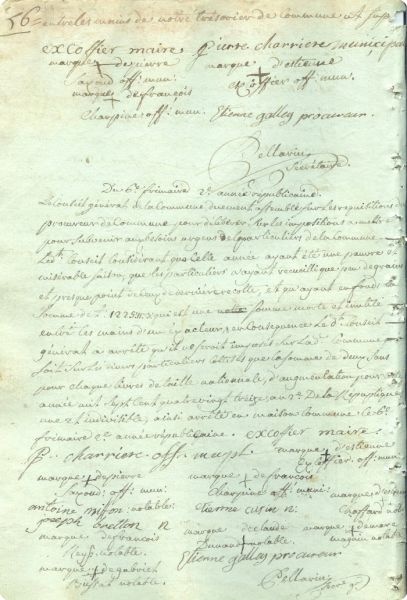 56
entre les mains de notre trésorier de commune ut sup
excoffier maire Pierre charriere municipal
marque + de pierre marque + d'estienne
Savoud off: mun: Excoffier off: mun:
marque + de françois
Charpine off: mun. Etienne gallay procureur.
Pellarin
Secrétaire.
Du 6e frimaire 2e année républicaine.
Le conseil général de la commune duement assemblé sur les requisitions du
procureur de Commune pour délibérer sur les impositions a mettre
pour subvenir aux besoins urgens des particuliers de la Commune
Led. Conseil considérant que cette année ayant été une pauvre et
misérable saison, que les particuliers n'ayant recueilli que peu de grains
et presque point de la derniere récolte, et qu'ayant en fonds la
somme de L. 1225 qui est une somme morte et inutile
entre les mains d'un exacteur, en conséquence Le d. Conseil
général a arrêté qu'il ne seroit imposés sur lad. commune
soit sur les divers particuliers cottisés que la somme de deux sous
pour chaque livre de taille nationale, d'augmentation pour
année mil sept cent quatre vingt treize au 2e De la République
une et indivisible, ainsi arrêté en maison commune le 6e
frimaire 2e année républicaine. excoffier maire
P. charriere off. mupl. marque + d'estienne
Excoffier off: mun:
marque + de pierre marque + de françois
Savoud: off: mun: Charpine off: muni: marque
antoine notable: etienne cusin n:
joseph bretton n marque de claude marque + de
marque + de françois notable notable
notable. Etienne gallay procureur
marque + de gabriel
notable. Pellarin